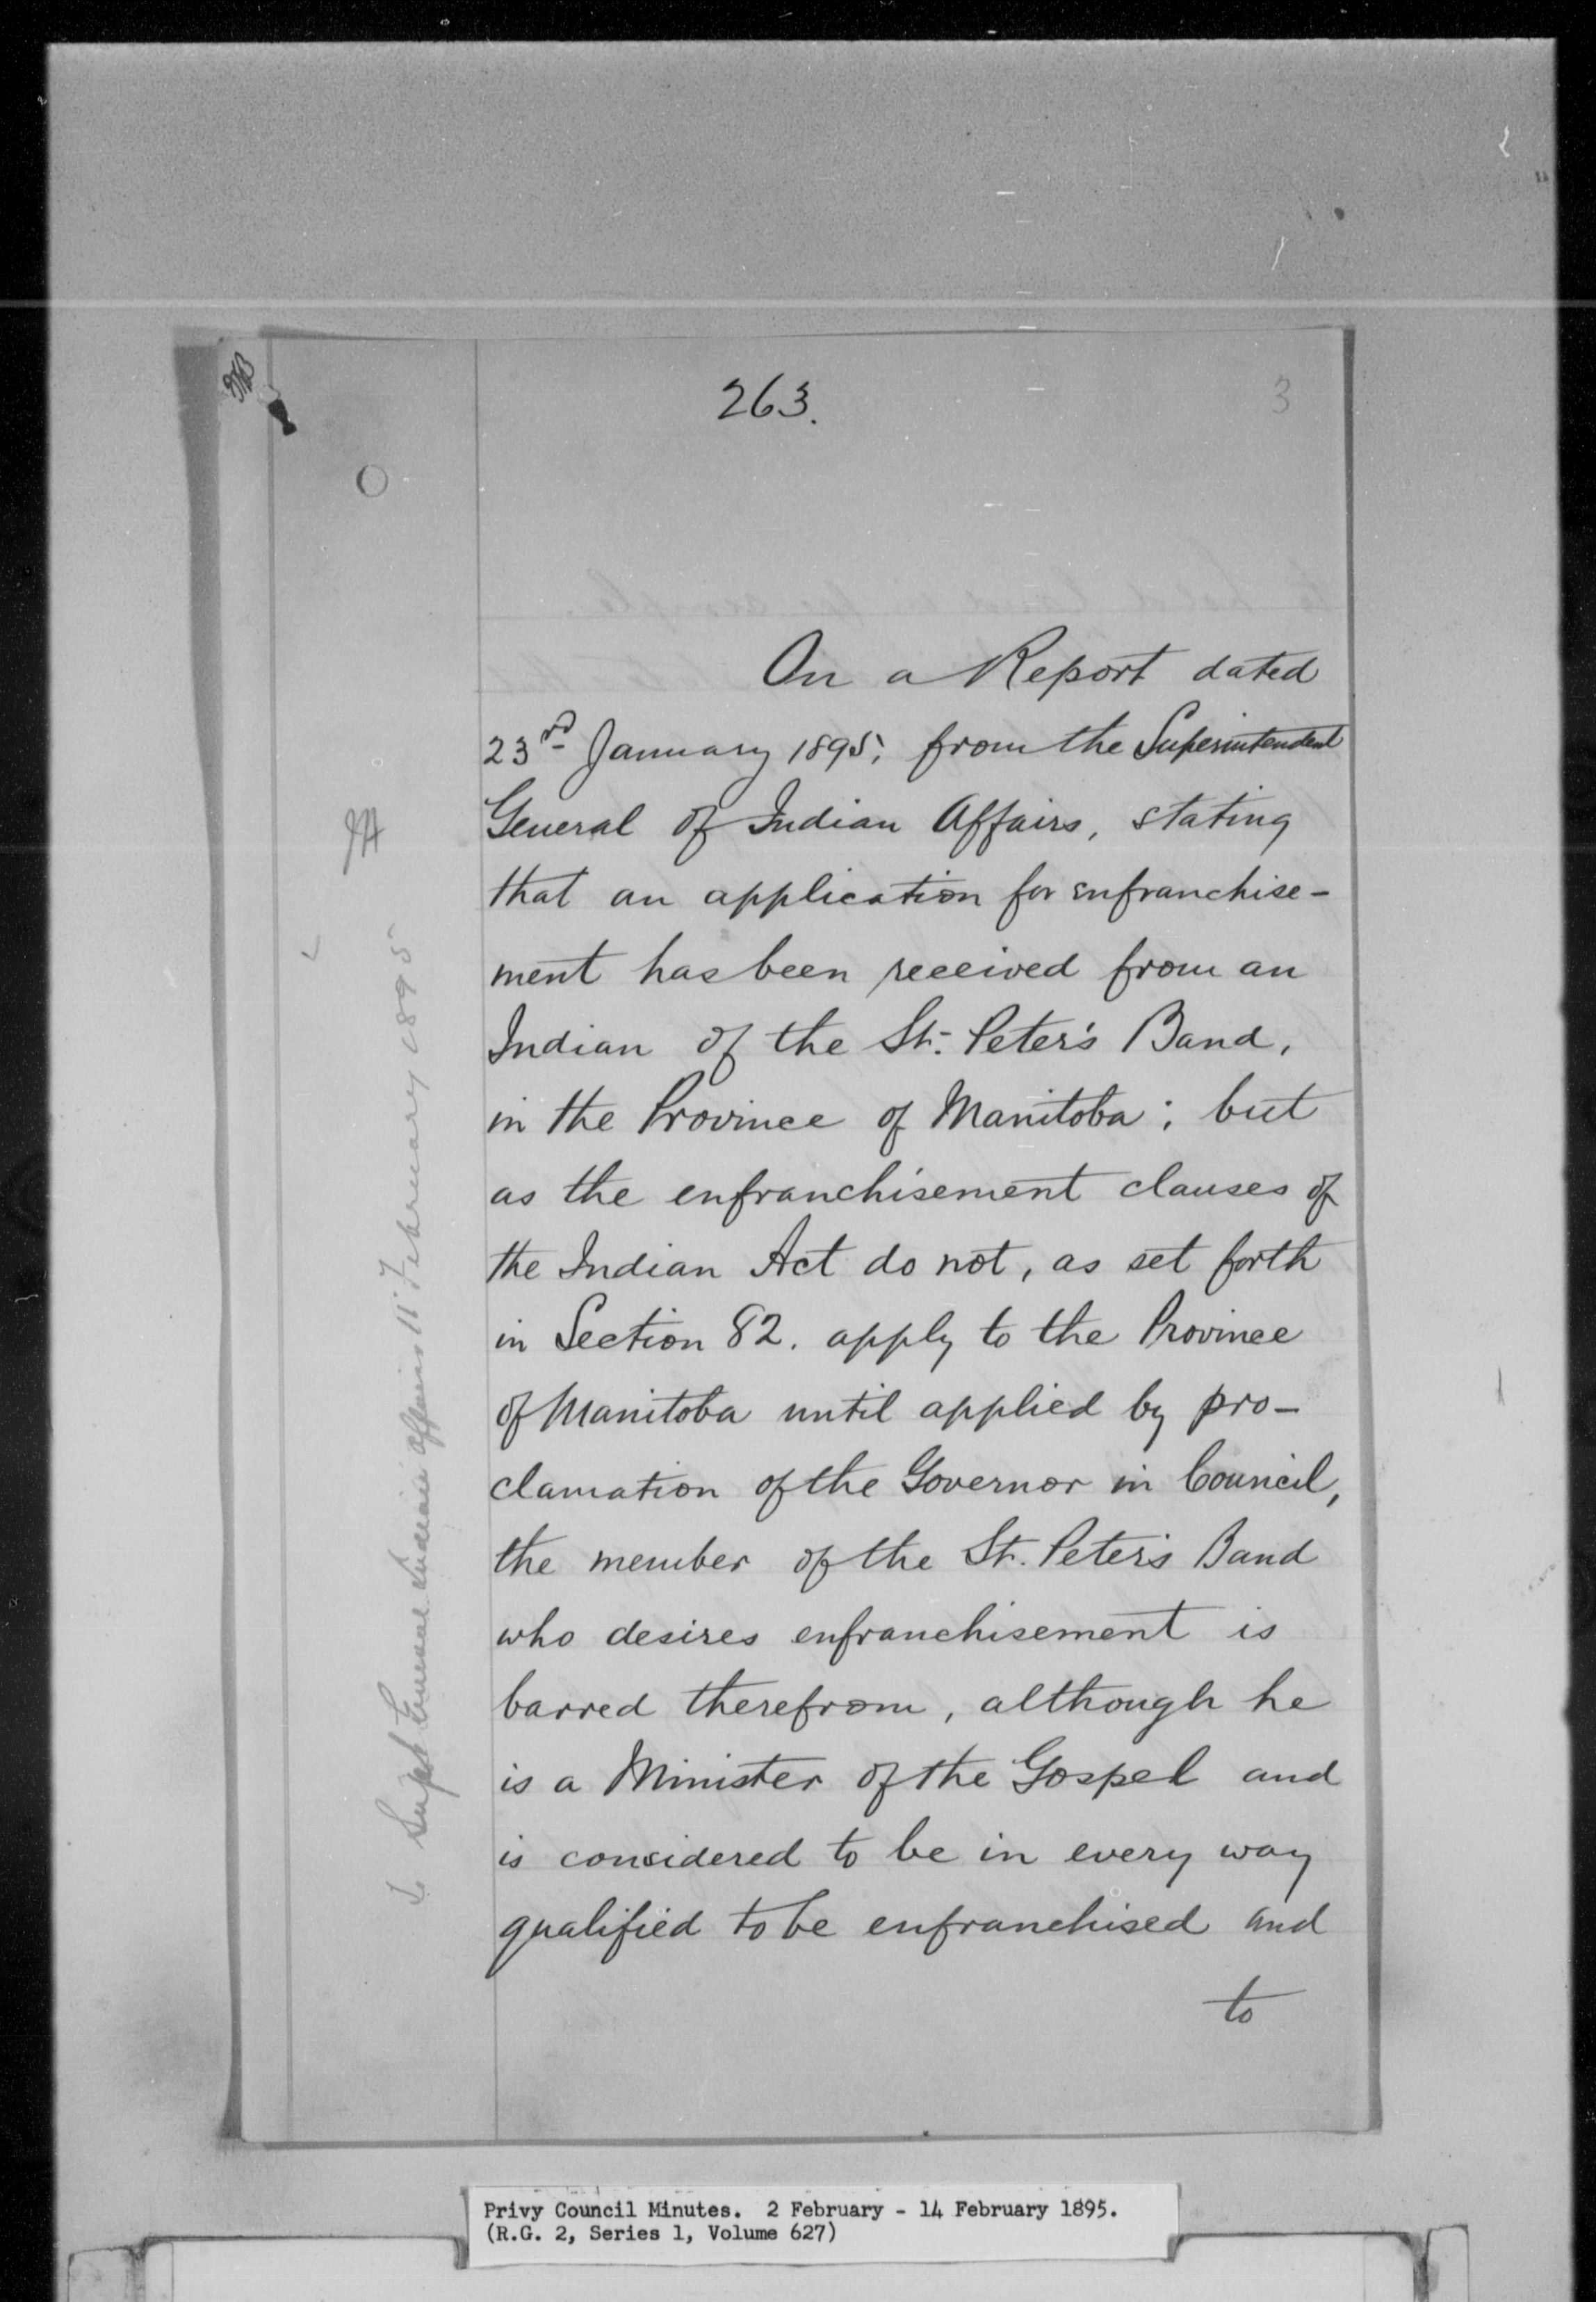 263.
3
On a Report dated
23rd January 1895, from the Superintendent
General of Indian Affairs, stating
that an application for enfranchise-
ment has been received from an
Indian of the St. Peter's Band,
in the Province of Manitoba; but
as the enfranchisement clauses of
the Indian Act do not, as set forth
in Section 82. apply to the Province
of Manitoba until applied by pro-
clamation of the Governor in Council,
the member of the St. Peter's Band
who desires enfranchisement is
barred therefrom, although he
is a Minister of the Gospel and
is considered to be in every way
qualified to be enfranchised and
to
Supt General Indian Affairs 11 February 1895
Privy Council Minutes. 2 February - 14 February 1895.
(R.G. 2, Series 1, Volume 627)